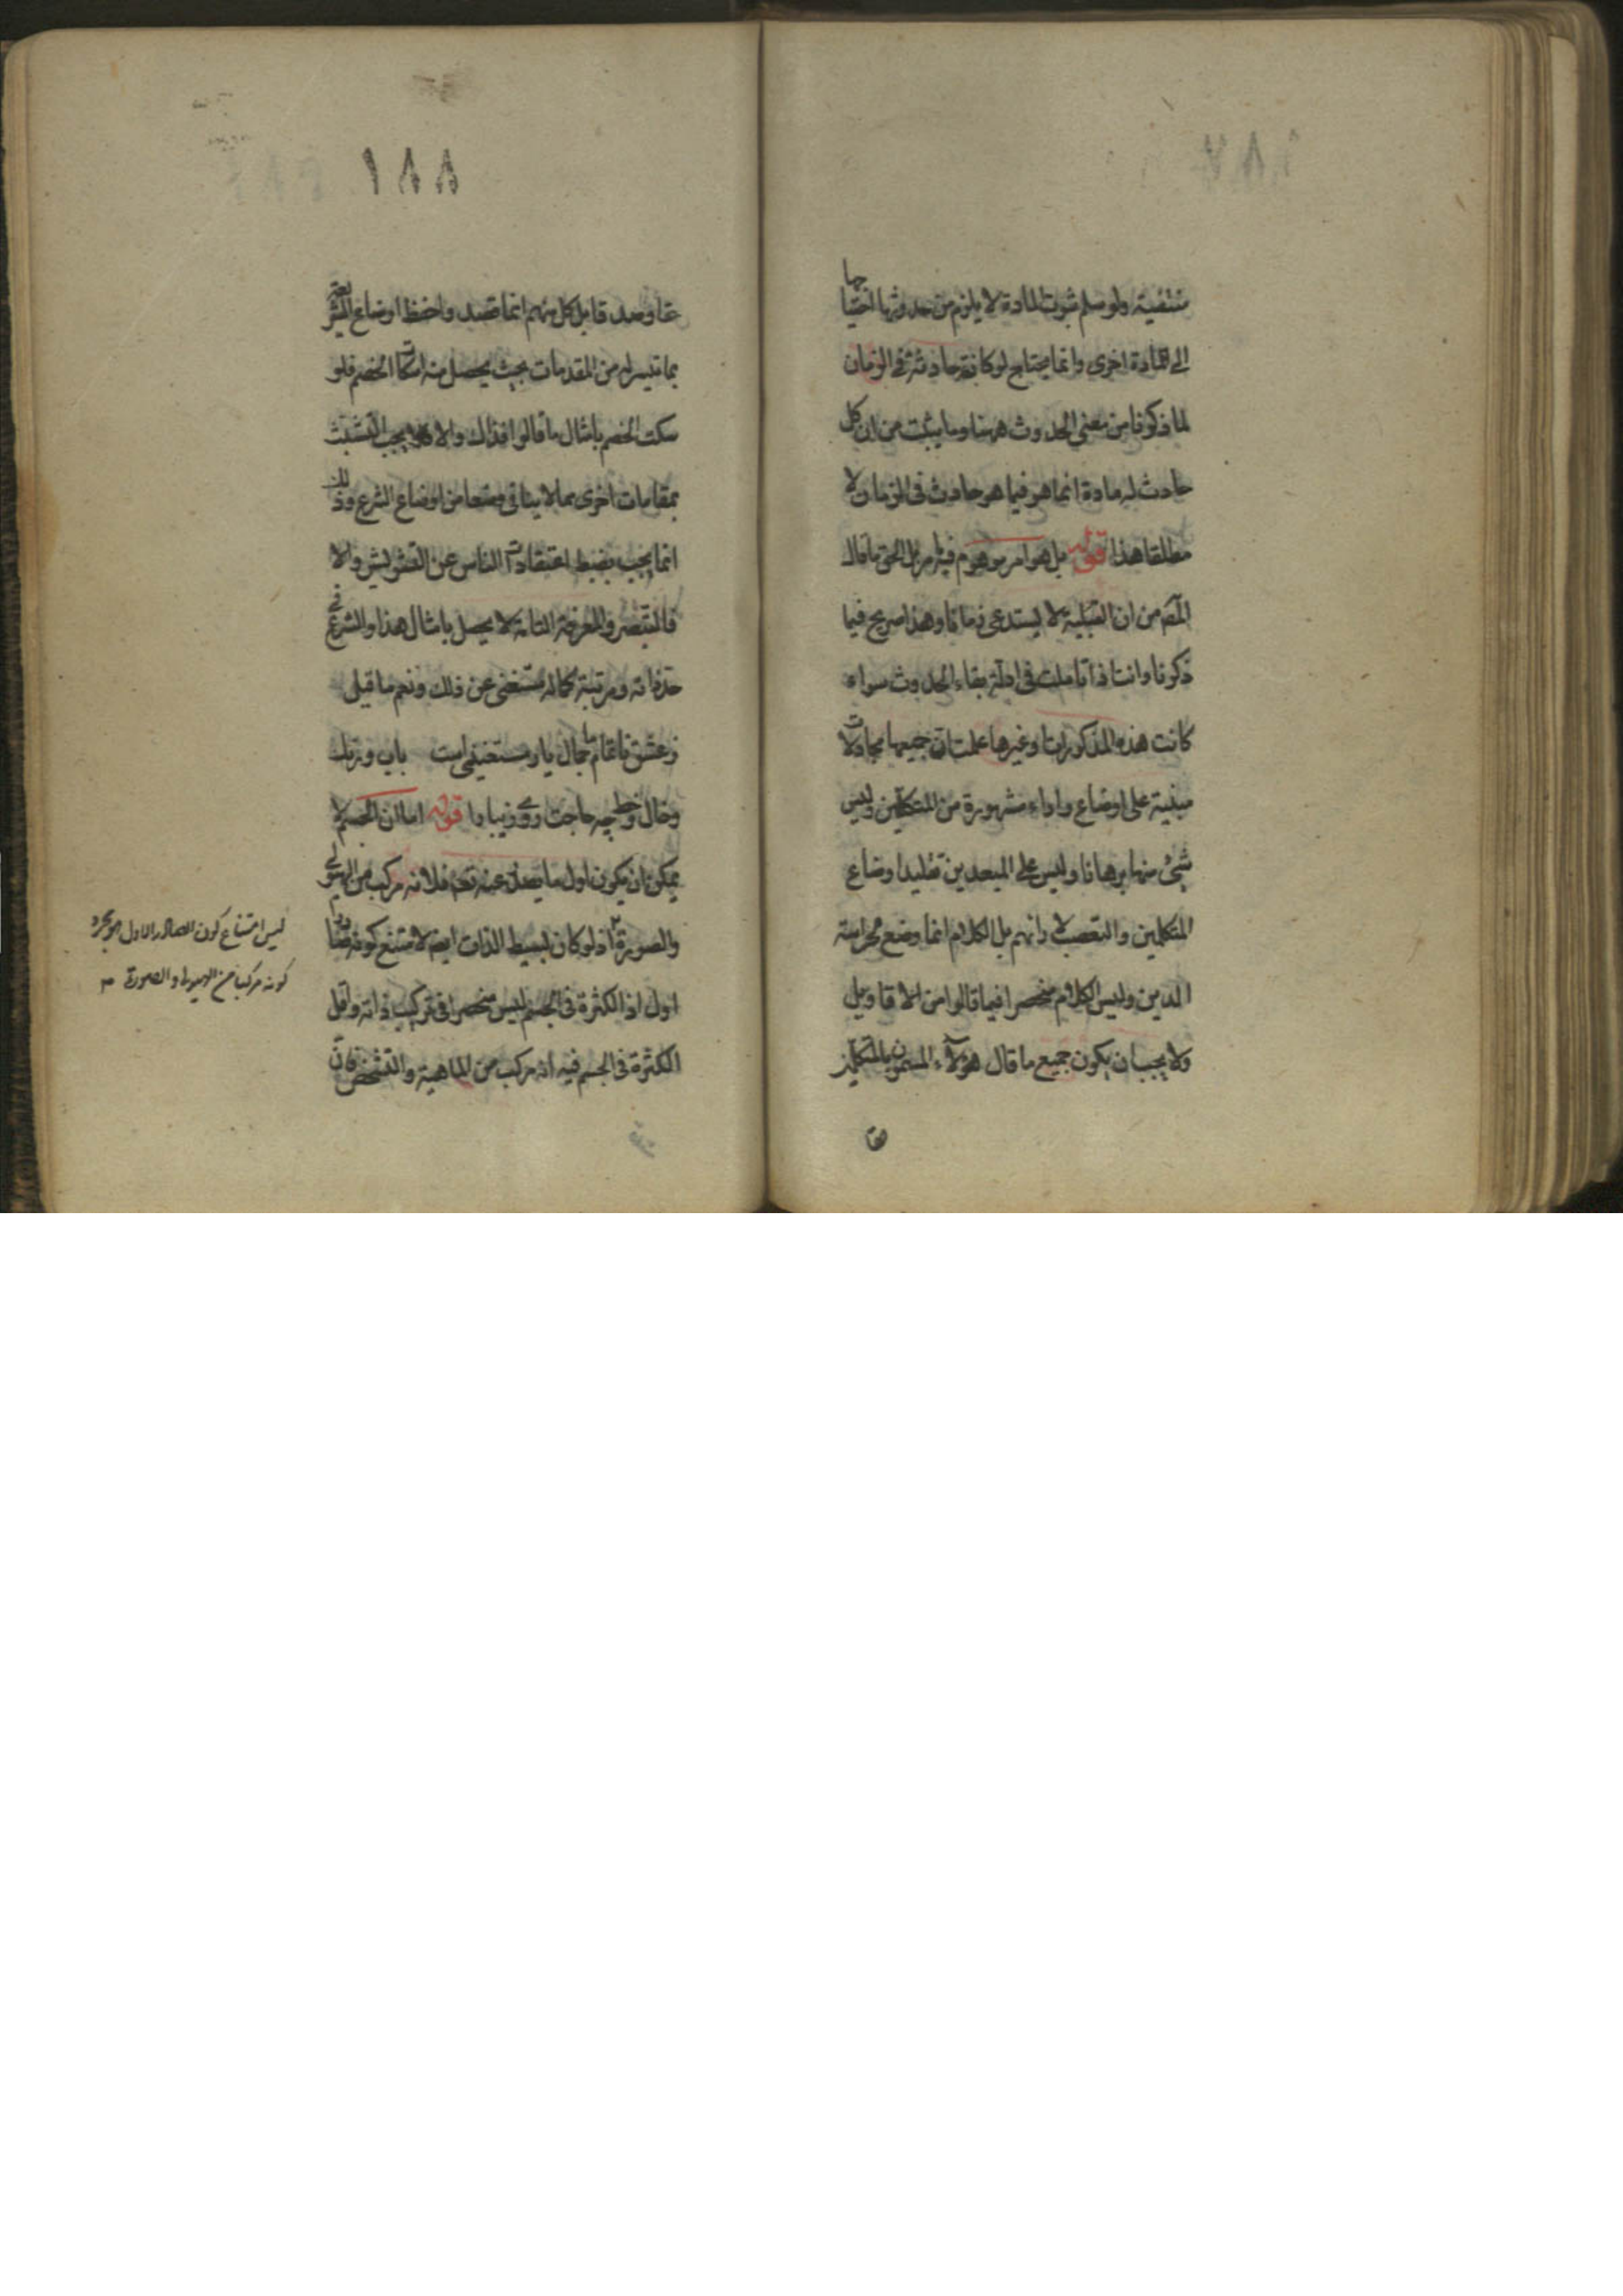 منتفية ولو سلم ثبوت المادة لا يلزم من حدوثها احتياجها
الى مادة اخرى وانما يحتاج لو كانت حادثة في الزمان
لما ذكرنا من معنى الحدوث ههنا وما يثبت من ان كل
حادث له مادة انما هو فيما هو حادث في الزمان لا
مطلقا هذا قوله بل هو امر موهوم فيه بل الحق ما قال
المصـ من ان القبلية لا يستدعى زمانا وهذا صريح فيما
ذكرنا وانت اذا تاملت في ادلة بقاء الحدوث سواء
كانت هذه المذكورات او غيرها علمت ان جميعها مجادلات
مبنية على اوضاع واراء مشهورة من المتكلمين وليس
شيء منها برهانا وليس على المبعدين تقليد اوضاع
المتكلمين والتعصب لارائهم بل الكلام انما وضع لحراسة
الدين وليس الكلام منحصرا فيما قالوا من الاقاويل
ولا يجب ان يكون جميع ما قال هؤلاء المسمون بالمتكلمين
١٨٨
قايل كل منهم انما قصد واحفظ اوضاع الشريعة
بما تيسر له من المقدمات بحيث يحصل منه اسكات الخصم فلو
سكت الخصم بامثال ما قالوا فذاك والا يجب التشبث
بمقامات اخرى مما لا ينافي وضعا من اوضاع الشرع وذلك
انما يجب بضبط اعتقادات الناس عن التشويش والا
فالتبصر والمعرفة التامة لا يحصل بامثال هذا والشرع في
حد ذاته ومرتبة كماله مستغنى عن ذلك ونعم ما قيل
ز عشق ناتمام ما جمال يار مستغنى است باب ورنك
وخال وخط چه حاجت روى زيبا را قوله اما ان الجسم لا
يمكن ان يكون اول ما يصدر عنه تعـ فلانه مركب من الهيولى
والصورة اذ لو كان بسيط الذات ايضـ لامتنع كونه صادرا
اول اذ الكثرة في الجسم ليس منحصرا في تركيب ذاته واقل
الكثرة في الجسم فيه انه مركب من الماهية والتشخص فان
ليس امتناع كون الصادر الاول هو مجرد
كونه مركبا من الهيولى والصورة